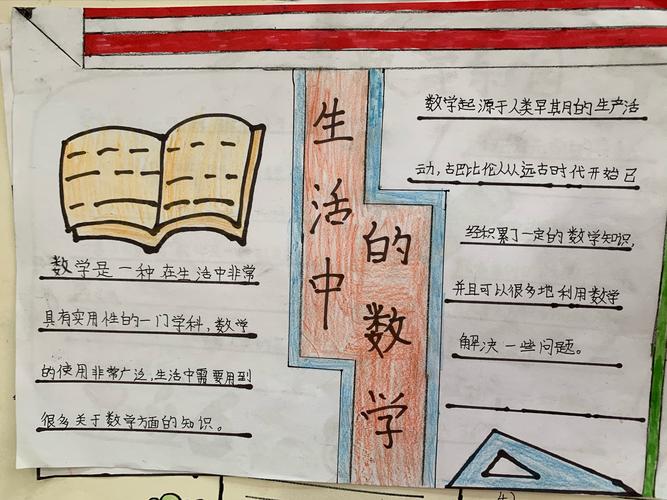 生活中
的数学
数学是一种在生活中非常
具有实用性的一门学科,数学
的使用非常广泛,生活中需要用到
很多关于数学方面的知识。
数学起源于人类早其月的生产活
动,古巴比伦人从远古时代开始已
经积累了一定的数学知识,
并且可以很多地利用数学
解决一些问题。